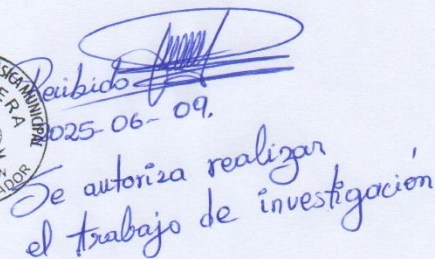 Recibido
2025-06-09.
Se autoriza realizar
el trabajo de investigación
MUNICIPAL